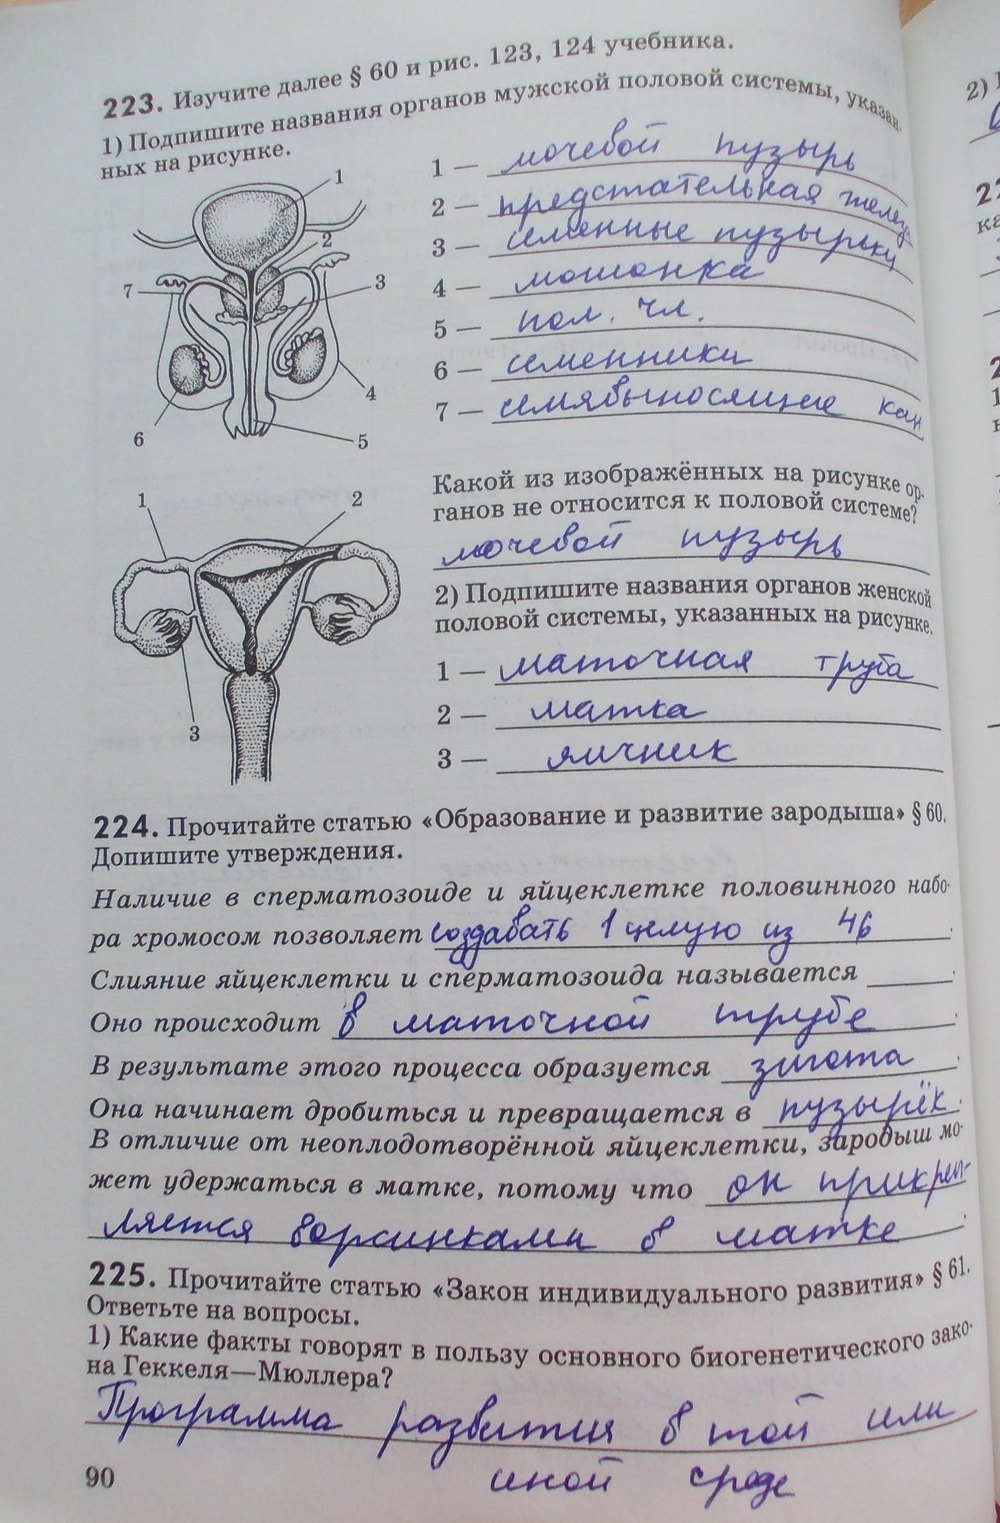 223. Изучите далее § 60 и рис. 123, 124 учебника.
1) Подпишите названия органов мужской половой системы, указан-
ных на рисунке.
1 — мочевой пузырь
2 — предстательная железа
3 — семенные пузырьки
4 — мошонка
5 — пол. чл.
6 — семенники
7 — семявыносящие кан
1
2
3
7
4
6
5
Какой из изображённых на рисунке ор-
ганов не относится к половой системе?
мочевой пузырь
2) Подпишите названия органов женской
половой системы, указанных на рисунке.
1 — маточная труба
2 — матка
3 — яичник
1
2
3
224. Прочитайте статью «Образование и развитие зародыша» § 60.
Допишите утверждения.
Наличие в сперматозоиде и яйцеклетке половинного набо-
ра хромосом позволяет создавать 1 целую из 46.
Слияние яйцеклетки и сперматозоида называется ____.
Оно происходит в маточной трубе.
В результате этого процесса образуется зигота.
Она начинает дробиться и превращается в пузырёк.
В отличие от неоплодотворённой яйцеклетки, зародыш мо-
жет удержаться в матке, потому что он прикреп-
ляется ворсинками в матке.
225. Прочитайте статью «Закон индивидуального развития» § 61.
Ответьте на вопросы.
1) Какие факты говорят в пользу основного биогенетического зако-
на Геккеля—Мюллера?
Программа развития в той или
иной среде
90
2)